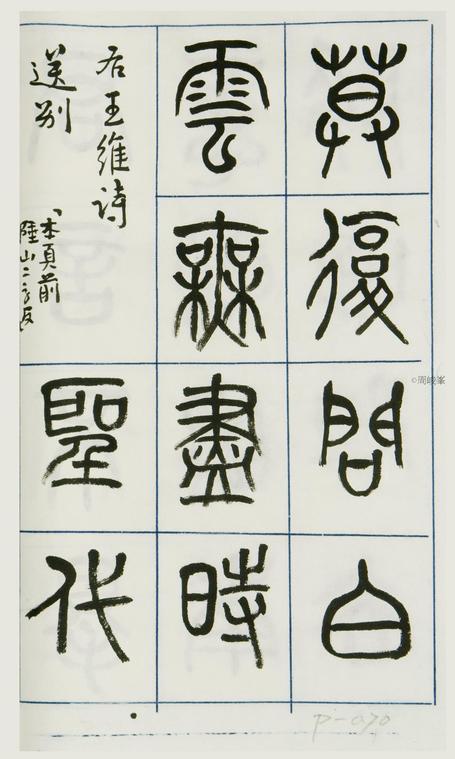 莫復問白
雲無盡時
右王維诗
送别
「本頁前
陸山二字反」
聖代
©周峻峯
P-070